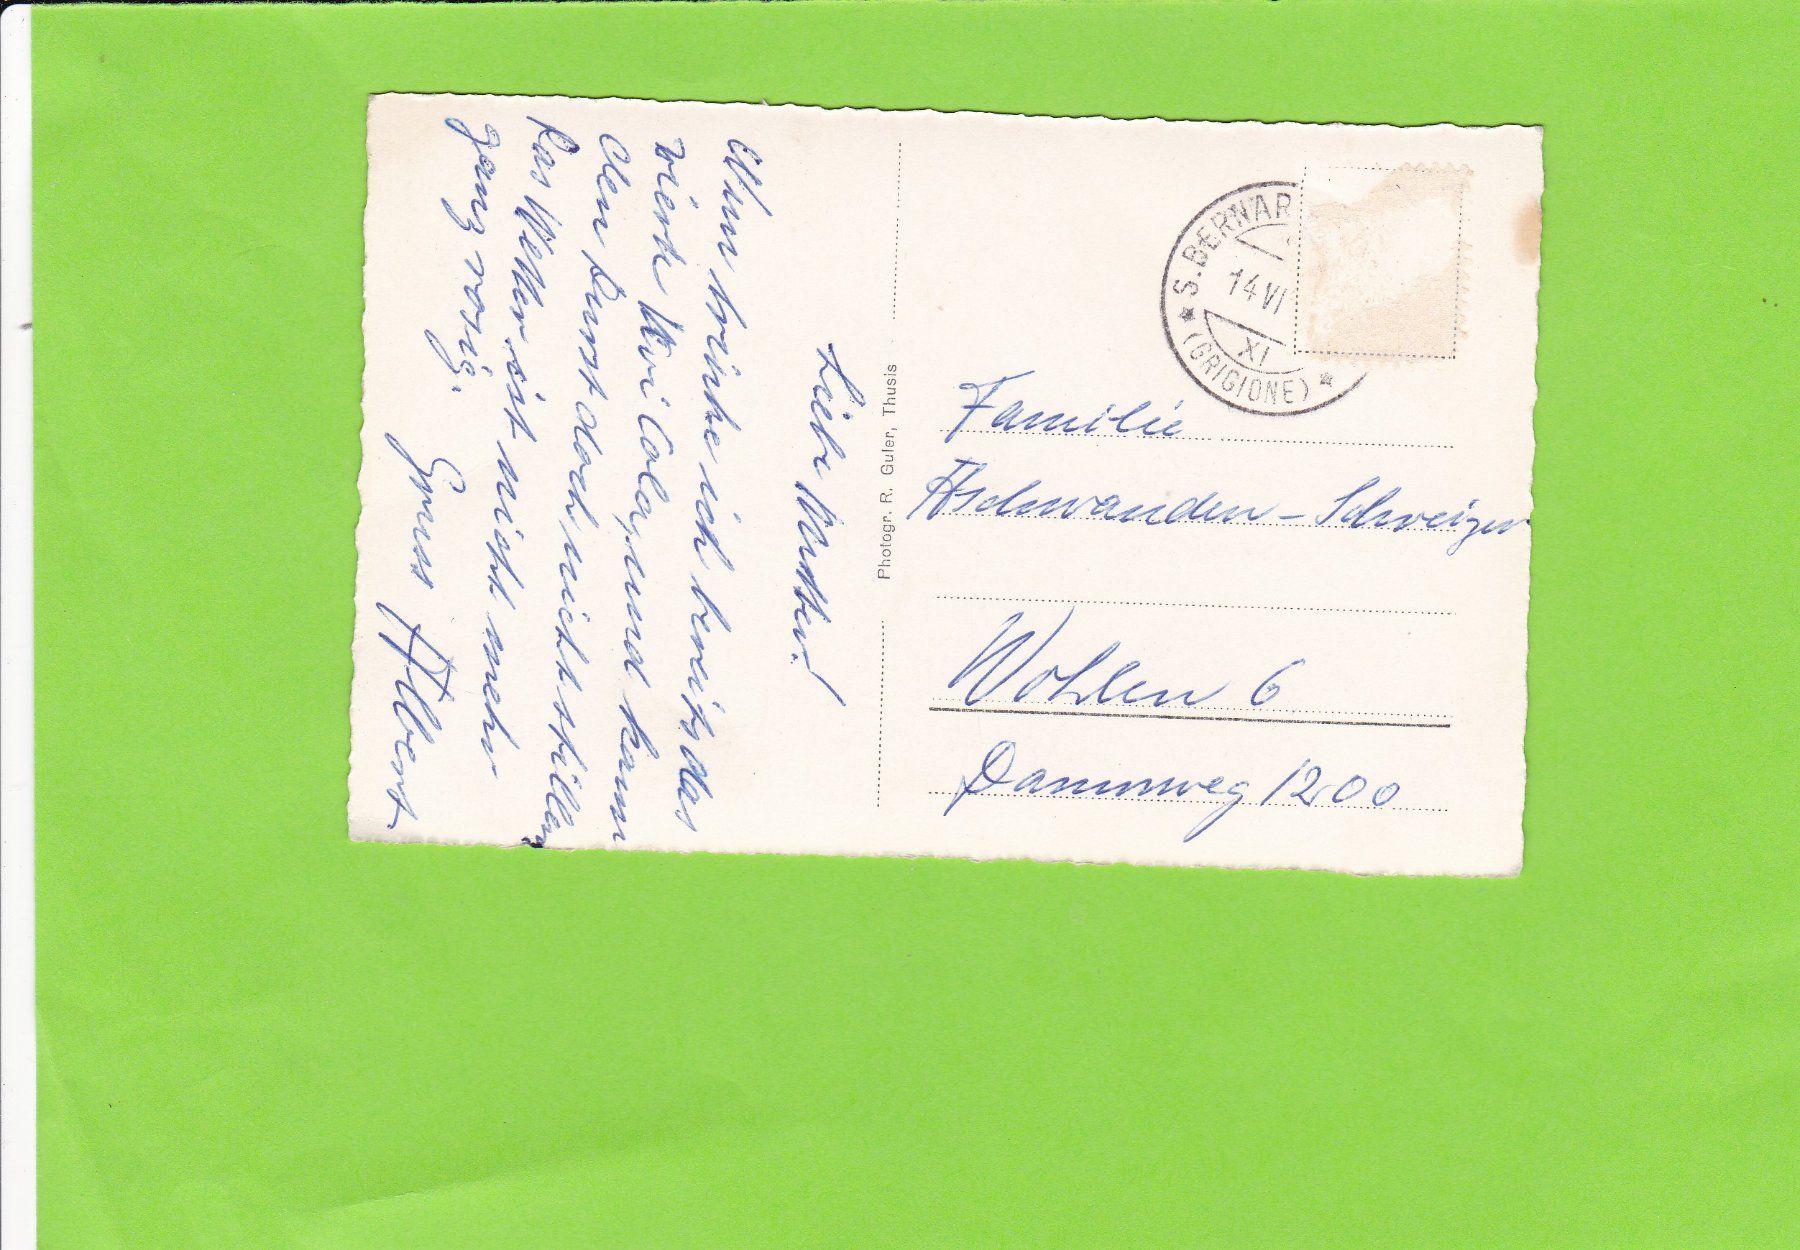 Liebe Mutter!
Nun trinke ich bereits das
vierte Vivi Cola, und kann
den Durst doch nicht stillen
Das Wetter ist nicht mehr
ganz rosig.
Gruss Albert.
Photogr. R. Guler, Thusis
S. BERNAR
14 VI
XI
(GRIGIONE)
Familie
Aschwanden - Schweizer
Wohlen 6
Dammweg 1200